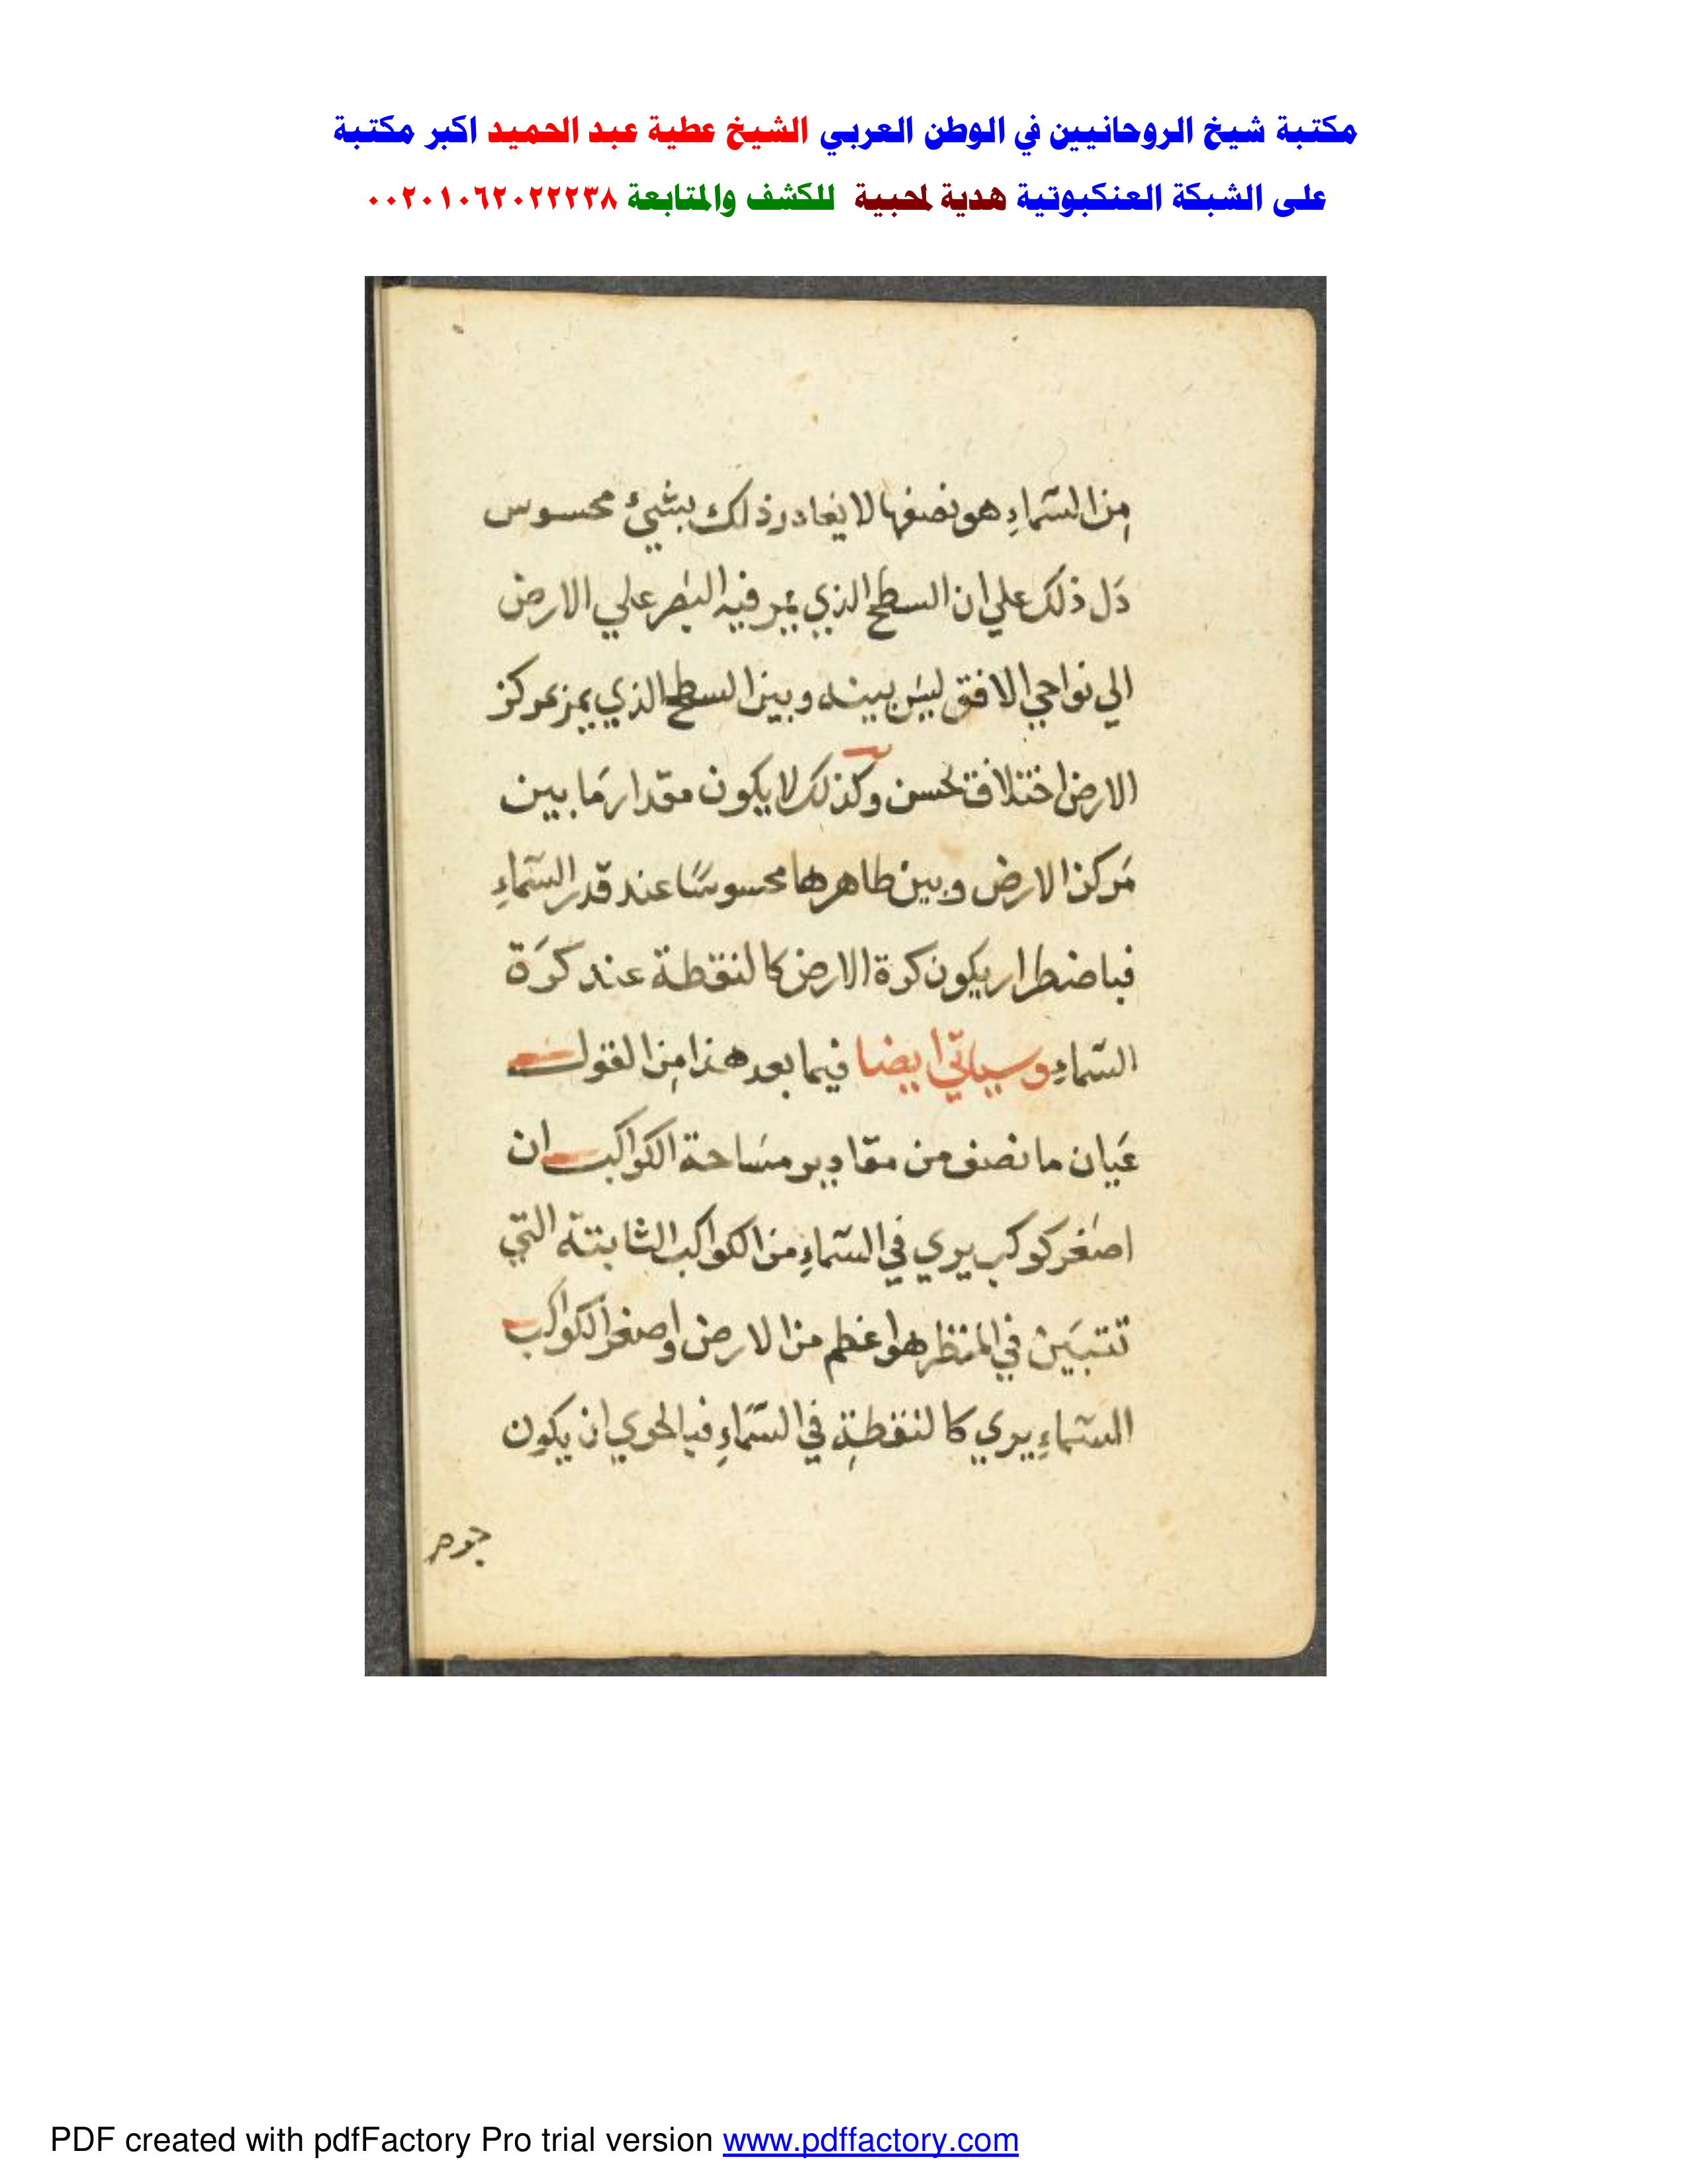 مكتبة شيخ الروحانيين في الوطن العربي الشيخ عطية عبد الحميد اكبر مكتبة
على الشبكة العنكبوتية هدية لمحبية للكشف والمتابعة ٠٠٢٠١٠٦٢٠٢٢٢٣٨
مِن السّماءِ هو نصفها لا يغادر ذلك بشيئ محسوس
دَل ذلك علي ان السطح الذي يمر فيه البَصر علي الارض
الي نواحي الافق ليسَ بينه وبين السطح الذي يمر بمركز
الارض اختلاف وكذلك لا يكون مقدار مَا بين
مَركز الارض وبين طاهرها محسوسًا عند قدر السّماءِ
فباضطرار يكون كرة الارض كالنقطة عند كرَة
السّماءِ وسياتي ايضا فيما بعد هذا مِن القول
عَيان ما نصف من مقادير مسَاحة الكواكب ان
اصغر كوكب يري في السّماءِ من الكواكب الثابتة التي
تتبيَن في المنظر هو اعظم من الارض واصغر الكواكب
السّماءِ يري كالنقطةِ في السّمَاءِ فبالحري ان يكون
جوم
PDF created with pdfFactory Pro trial version www.pdffactory.com